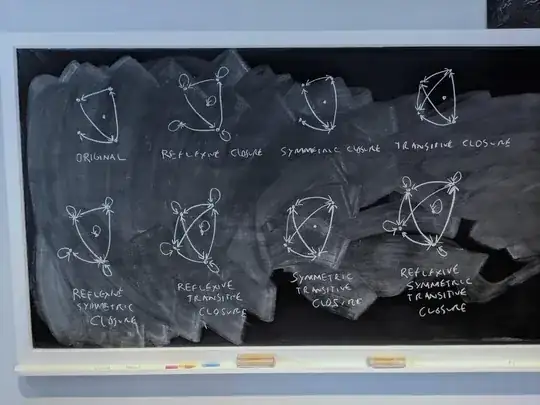 ORIGINAL
REFLEXIVE CLOSURE
SYMMETRIC CLOSURE
TRANSITIVE CLOSURE
REFLEXIVE
SYMMETRIC
CLOSURE
REFLEXIVE
TRANSITIVE
CLOSURE
SYMMETRIC
TRANSITIVE
CLOSURE
REFLEXIVE
SYMMETRIC
TRANSITIVE
CLOSURE